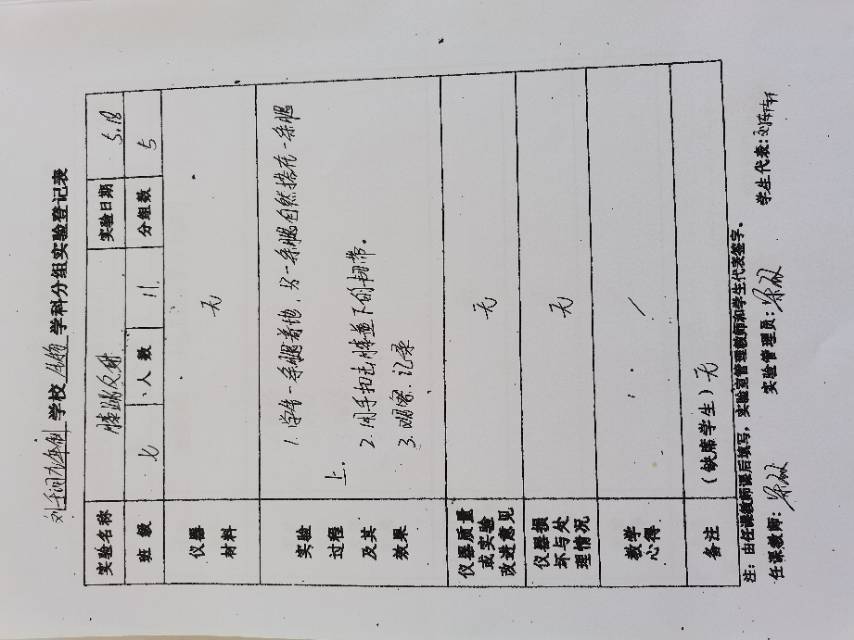 刘千润九年制学校生物学科分组实验登记表
实验名称 膝跳反射 实验日期 5.18
班级 七 人数 11 分组数 5
仪器材料 无
实验过程及其效果
1. 学生一条腿着地,另一条腿自然搭在一条腿
上。
2. 用手扣击膝盖下的韧带。
3. 观察、记录
仪器质量或实验改进意见 无
仪器损坏与处理情况 无
教学心得 /
备注 (缺席学生)无
注:由任课教师课后填写,实验室管理教师和学生代表签字。
任课教师: 实验管理员: 学生代表: